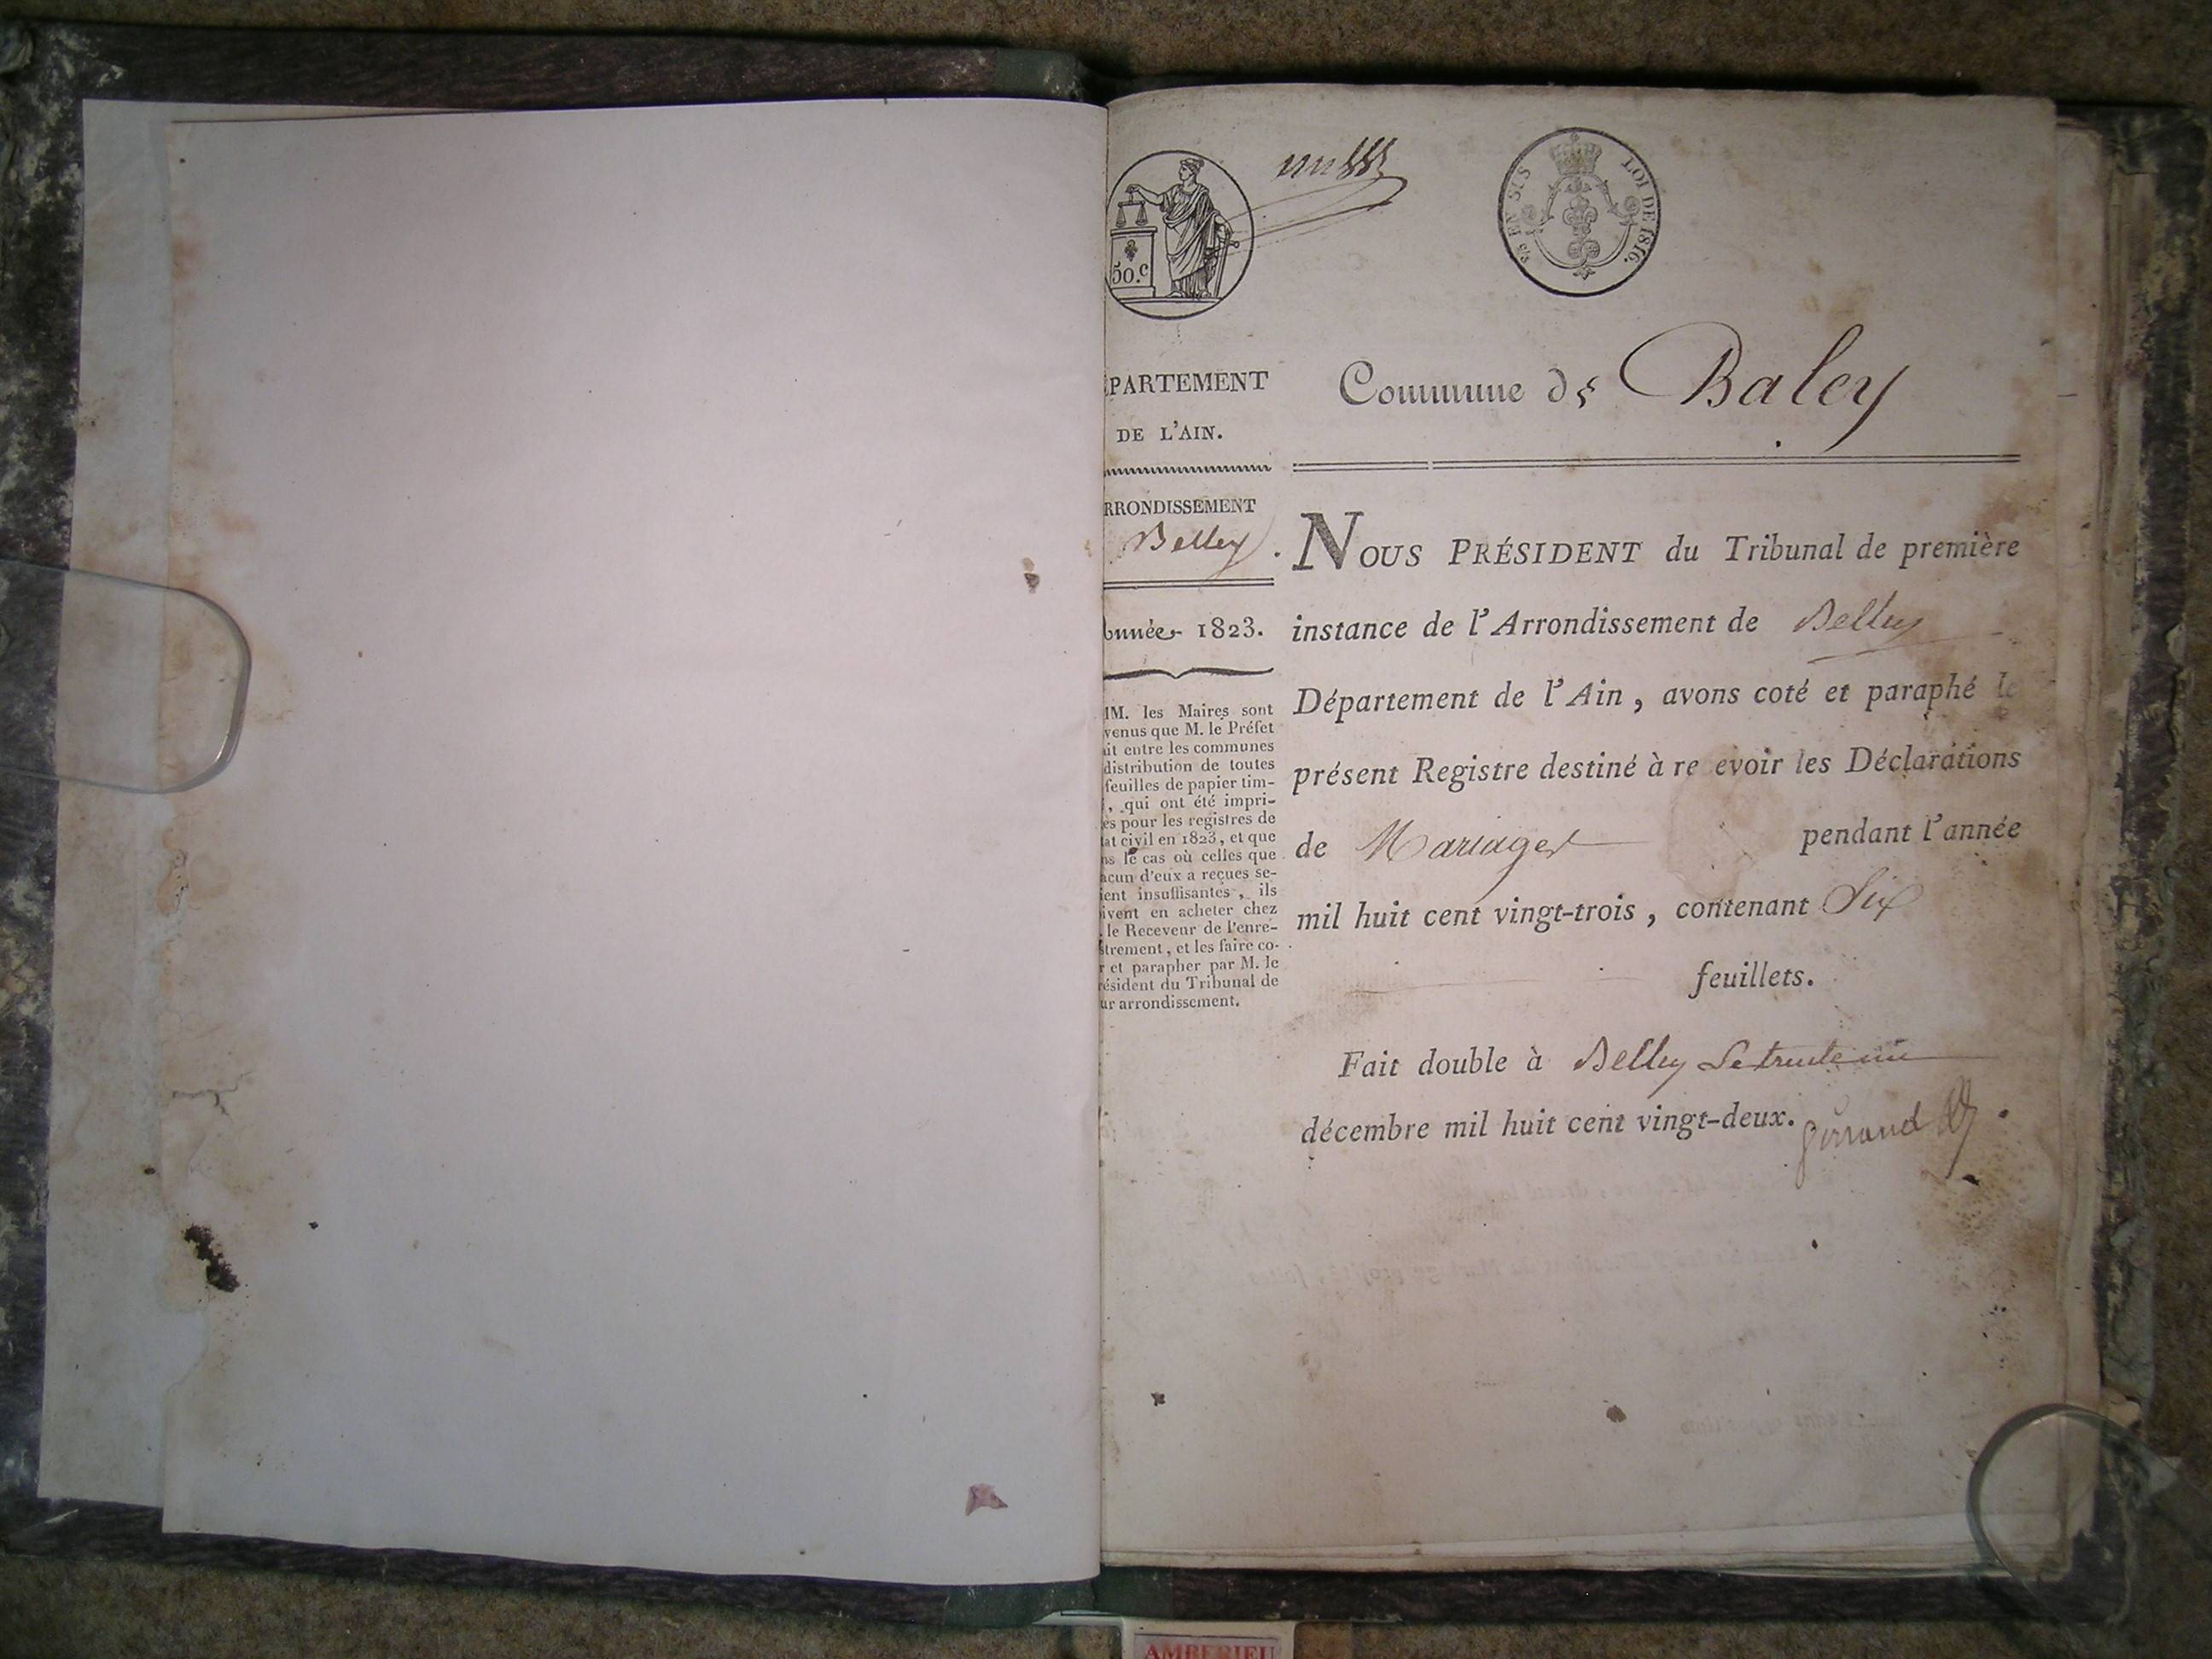 50.c
EN SUS
LOI DE 1816.
PARTEMENT
DE L'AIN.
RRONDISSEMENT
Belley
nnée 1823.
M. les Maires sont
venus que M. le Préfet
it entre les communes
distribution de toutes
feuilles de papier tim-
, qui ont été impri-
es pour les registres de
at civil en 1823, et que
ns le cas où celles que
acun d'eux a reçues se-
ient insuffisantes, ils
ivent en acheter chez
. le Receveur de l'enre-
strement, et les faire co-
r et parapher par M. le
résident du Tribunal de
ur arrondissement.
Commune de Baley
NOUS PRÉSIDENT du Tribunal de première
instance de l'Arrondissement de Belley
Département de l'Ain, avons coté et paraphé le
présent Registre destiné à re evoir les Déclarations
de Mariages pendant l'année
mil huit cent vingt-trois, contenant Six
feuillets.
Fait double à Belley Le trente un
décembre mil huit cent vingt-deux.
AMBERIEU